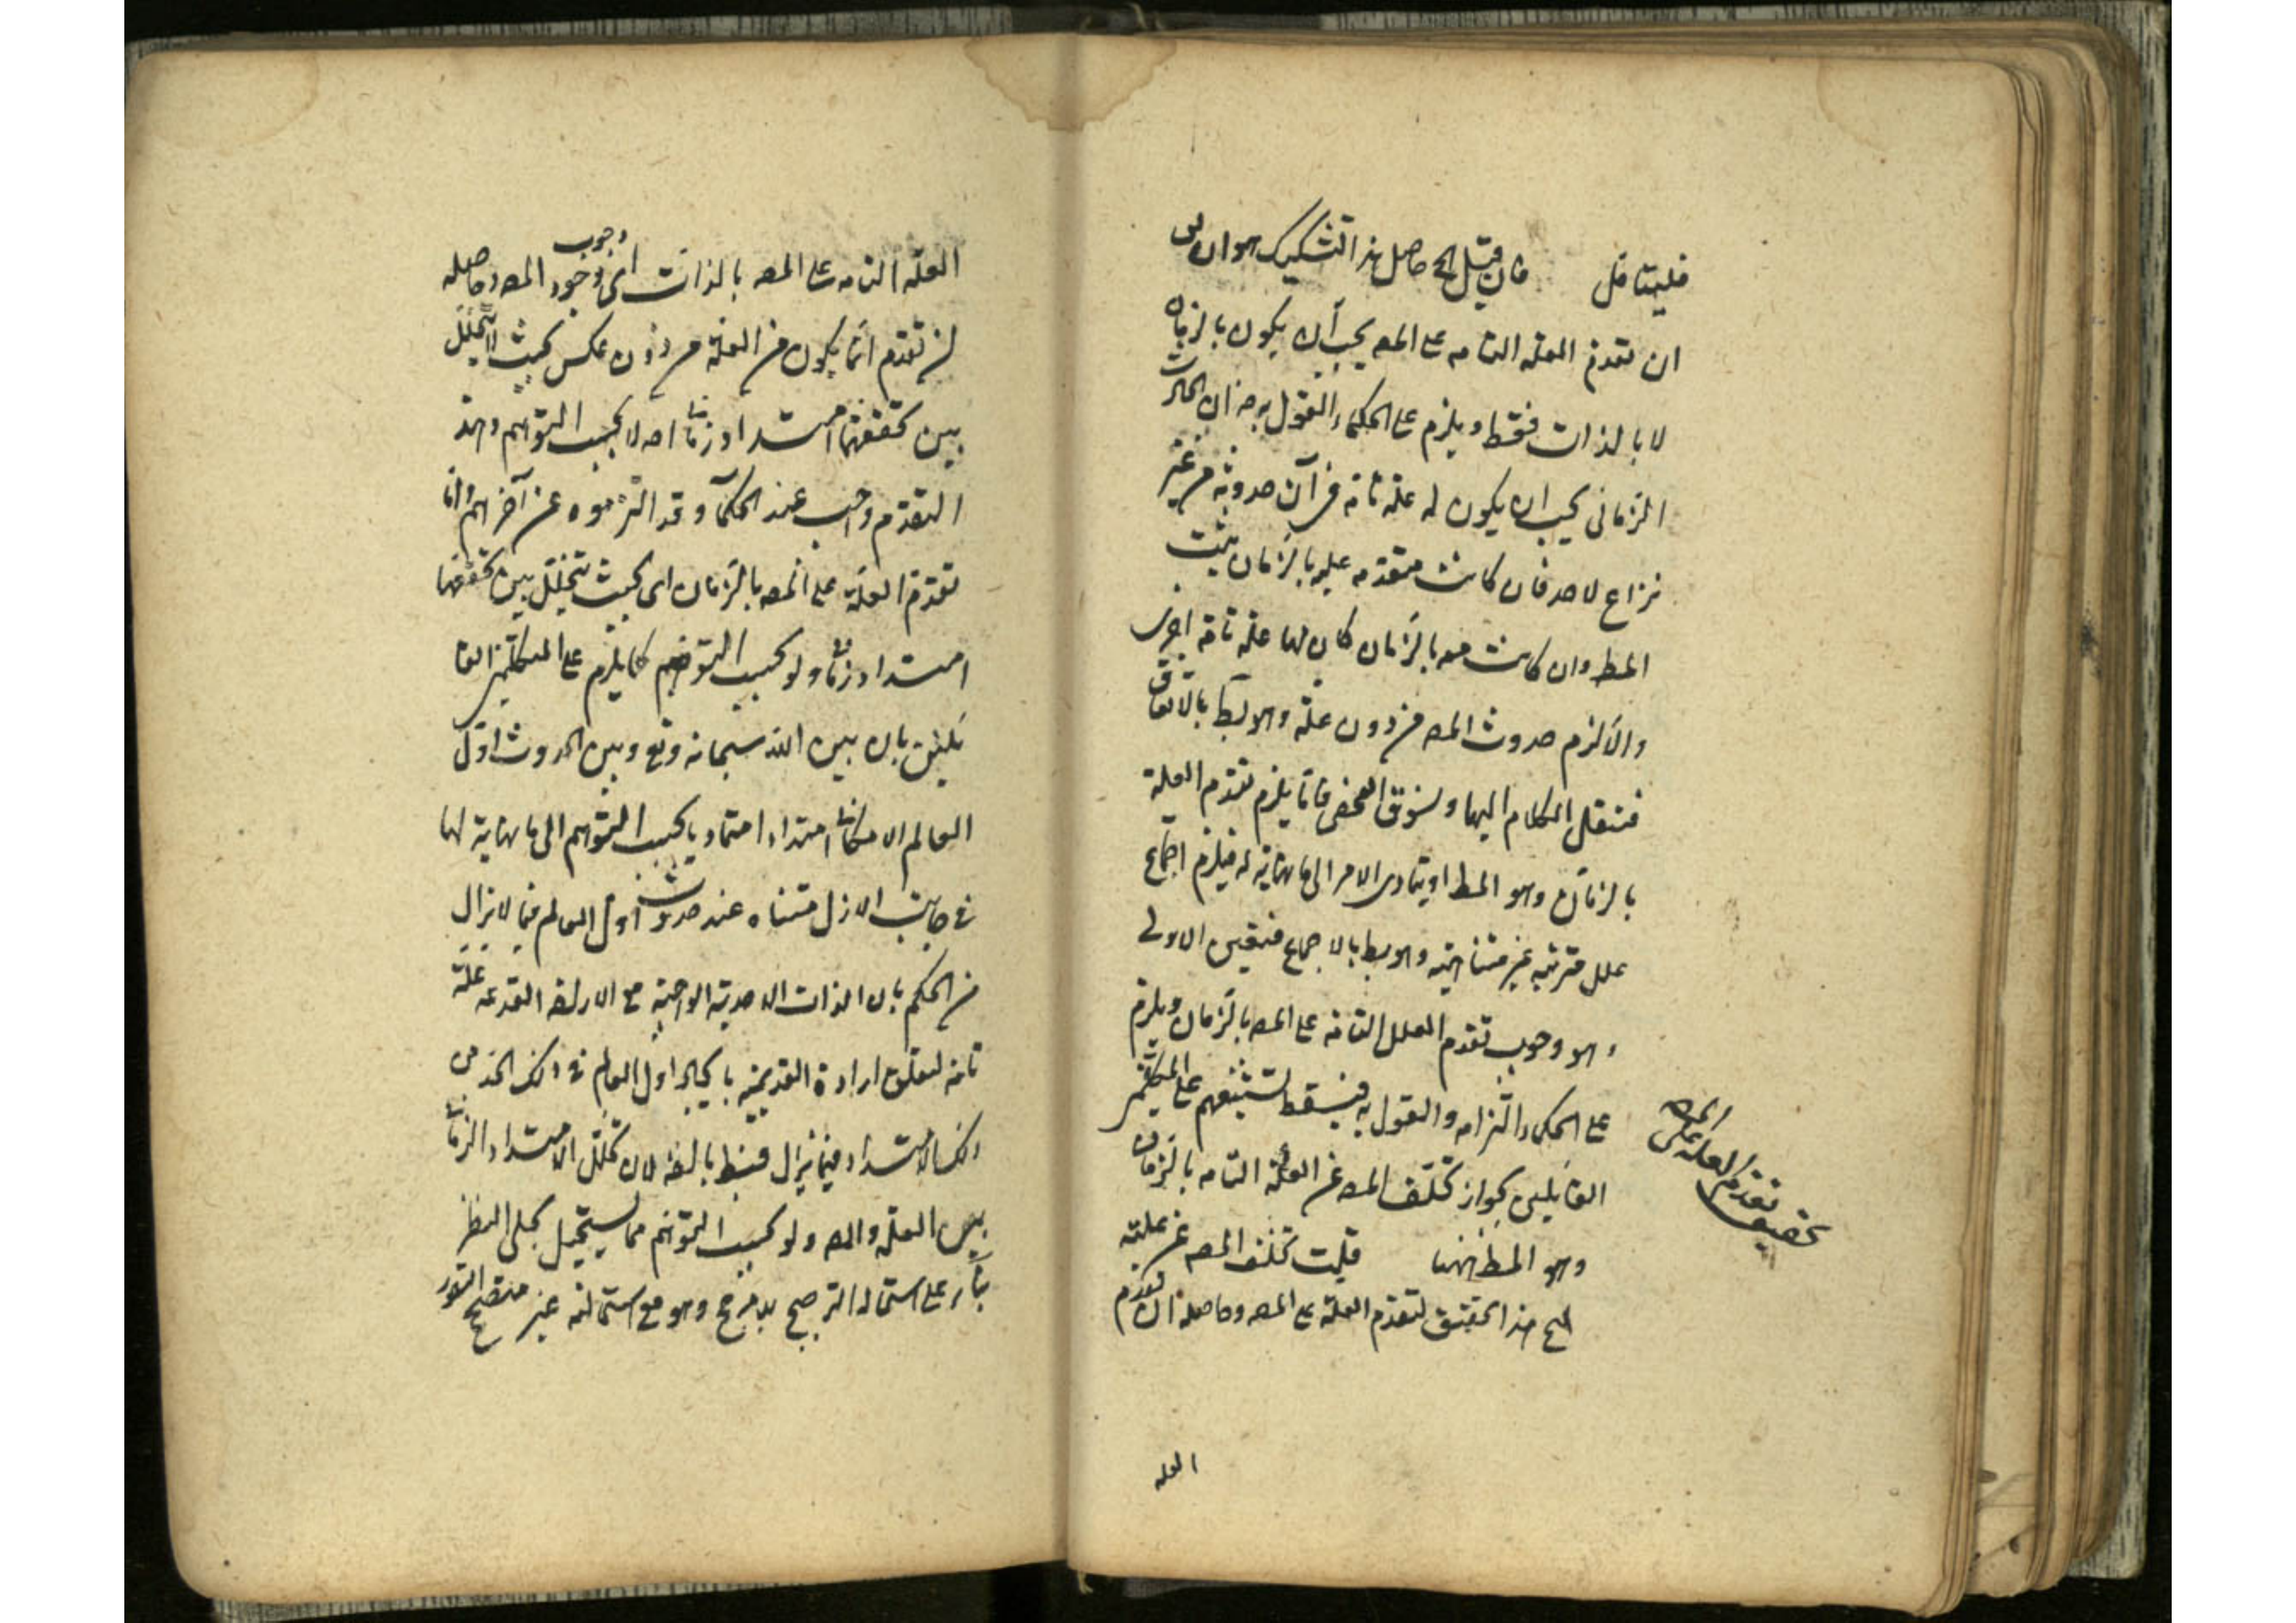 فليتامل فان قيل الح حاصل هذا التشكيك هو ان
ان تقدم العله التامه على المعـ يجب ان يكون بالزمان
لا بالذات فقط ويلزم على الحكماء القول به فان الحادث
الزماني يجب ان يكون له علة تامة في آن حدوثه من غير
نزاع لاحد فان كانت متقدمه عليه بالزمان يثبت
المط وان كانت معه بالزمان كان لها علة تامة اخرى
والا لزم حدوث المعـ من دون علة وهو بط بالاتفاق
فننقل الكلام اليها ونسوق الفحص فاما يلزم تقدم العلة
بالزمان وهو المط او يتمادى الامر الى ما لا نهاية له فيلزم اجتماع
علل مترتبه غير متناهية وهو بط بالاجماع فتعين الاولى
وهو وجوب تقدم العلل التامه على المعـ بالزمان ويلزم
على الحكماء التزامه والقول به فيسقط تشنيعهم على المتكلمين
القايلين بجواز تخلف المعـ عن العلة التامه بالزمان
وهو المط ههنا قلت تخلف المعـ عن علته
الح هذا تحقيق لتقدم العلة على المعـ وحاصله ان تقدم
تحقيق تقدم العله على المعـ
العله
العله التامه على المعـ بالذات اى وجود المعـ وحاصله
وجوب
ان تقدم انما يكون من العلة من دون عكس بحيث لا يتخلل
بين تحققهما امتداد زمانى اصلا بحسب التوهم وهذا
التقدم واجب عند الحكمآ وقد التزموه عن آخرهم واما
تقدم العلة على المعـ بالزمان اى بحيث يتخلل بين تحققهما
امتداد زمانى ولو بحسب التوهم كما يلزم على المتكلمين القا
ئلين بان بين الله سبحانه وتع وبين الحدوث اول
العالم الامكانى امتدادا متماديا بحسب التوهم الى ما لا نهاية لها
فى جانب الازل متناه عند حدوث اول العالم فيما لا يزال
من الحكم بان الذات الاحدية الواجبة مع الارادة القديمة علة
تامة لتعلق ارادة القديمة بايجاد اول العالم فى ذلك الحد من
ذلك الامتداد فيما يزال فبط بالضه لان تخلل الامتداد الزمانى
بين العلة والمعـ ولو بحسب التوهم مما يستحيل بجلى النظر
بناء على استحالة الترجيح بلا مرجح وهو مع استحالته غير متصحح التصور